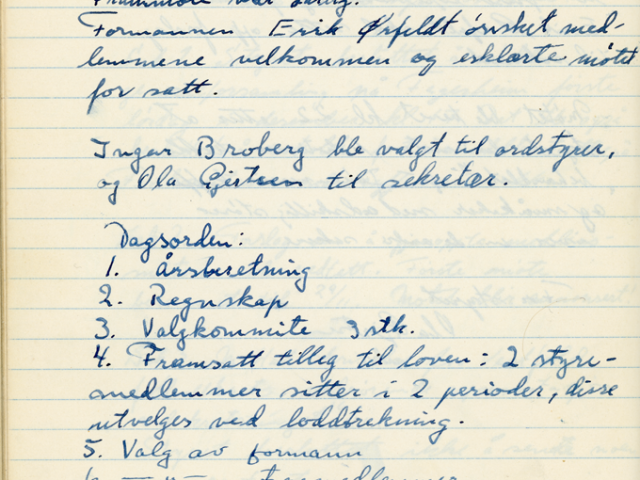 Frammøte var dårlig.
Formannen Erik Ørfeldt ønsket med-
lemmene velkommen og erklærte møtet
for satt.
Ingar Broberg ble valgt til ordstyrer,
og Ola Gjertsen til sekretær.
Dagsorden:
1. Årsberetning
2. Regnskap
3. Valgkommite 3 stk.
4. Framsatt tilleg til loven: 2 styre-
medlemmer sitter i 2 perioder, disse
utvelges ved loddtrekning.
5. Valg av formann